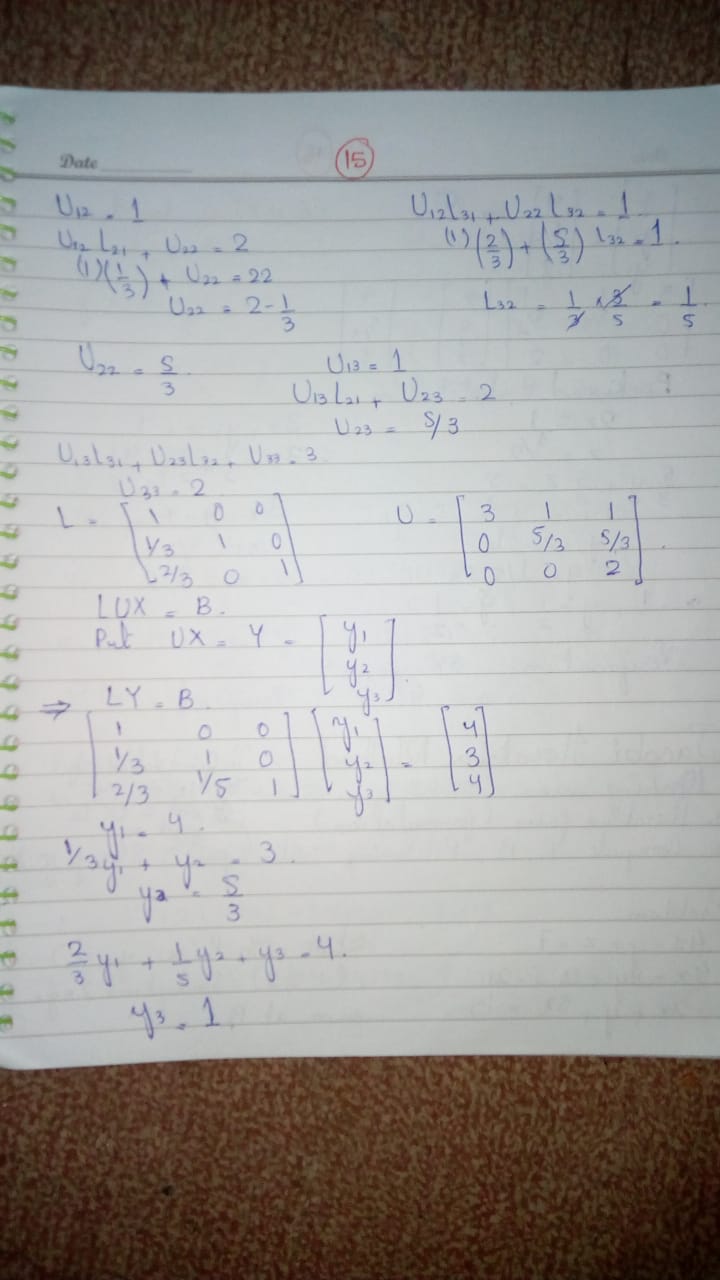 Date
15
U₁₂ = 1
U₁₂L₃₁ + U₂₂L₃₂ = 1
U₁₂L₂₁ + U₂₂ = 2
(1)(2/3) + (5/3) L₃₂ = 1.
(1)(1/3) + U₂₂ = 22
U₂₂ = 2 - 1/3
L₃₂ = 1/3 × 3/5 = 1/5
U₂₂ = 5/3
U₁₃ = 1
U₁₃L₂₁ + U₂₃ = 2
U₂₃ = 5/3
U₁₃L₃₁ + U₂₃L₃₂ + U₃₃ = 3
U₃₃ = 2
L = [1 0 0
1/3 1 0
2/3 0 1]
U = [3 1 1
0 5/3 5/3
0 0 2].
LUX = B.
Put UX = Y = [y₁
y₂
y₃].
⇒ LY = B.
[1 0 0
1/3 1 0
2/3 1/5 1] [y₁
y₂
y₃] = [4
3
4]
y₁ = 4.
1/3y₁ + y₂ = 3.
y₂ = 5/3
2/3 y₁ + 1/5 y₂ + y₃ = 4.
y₃ = 1